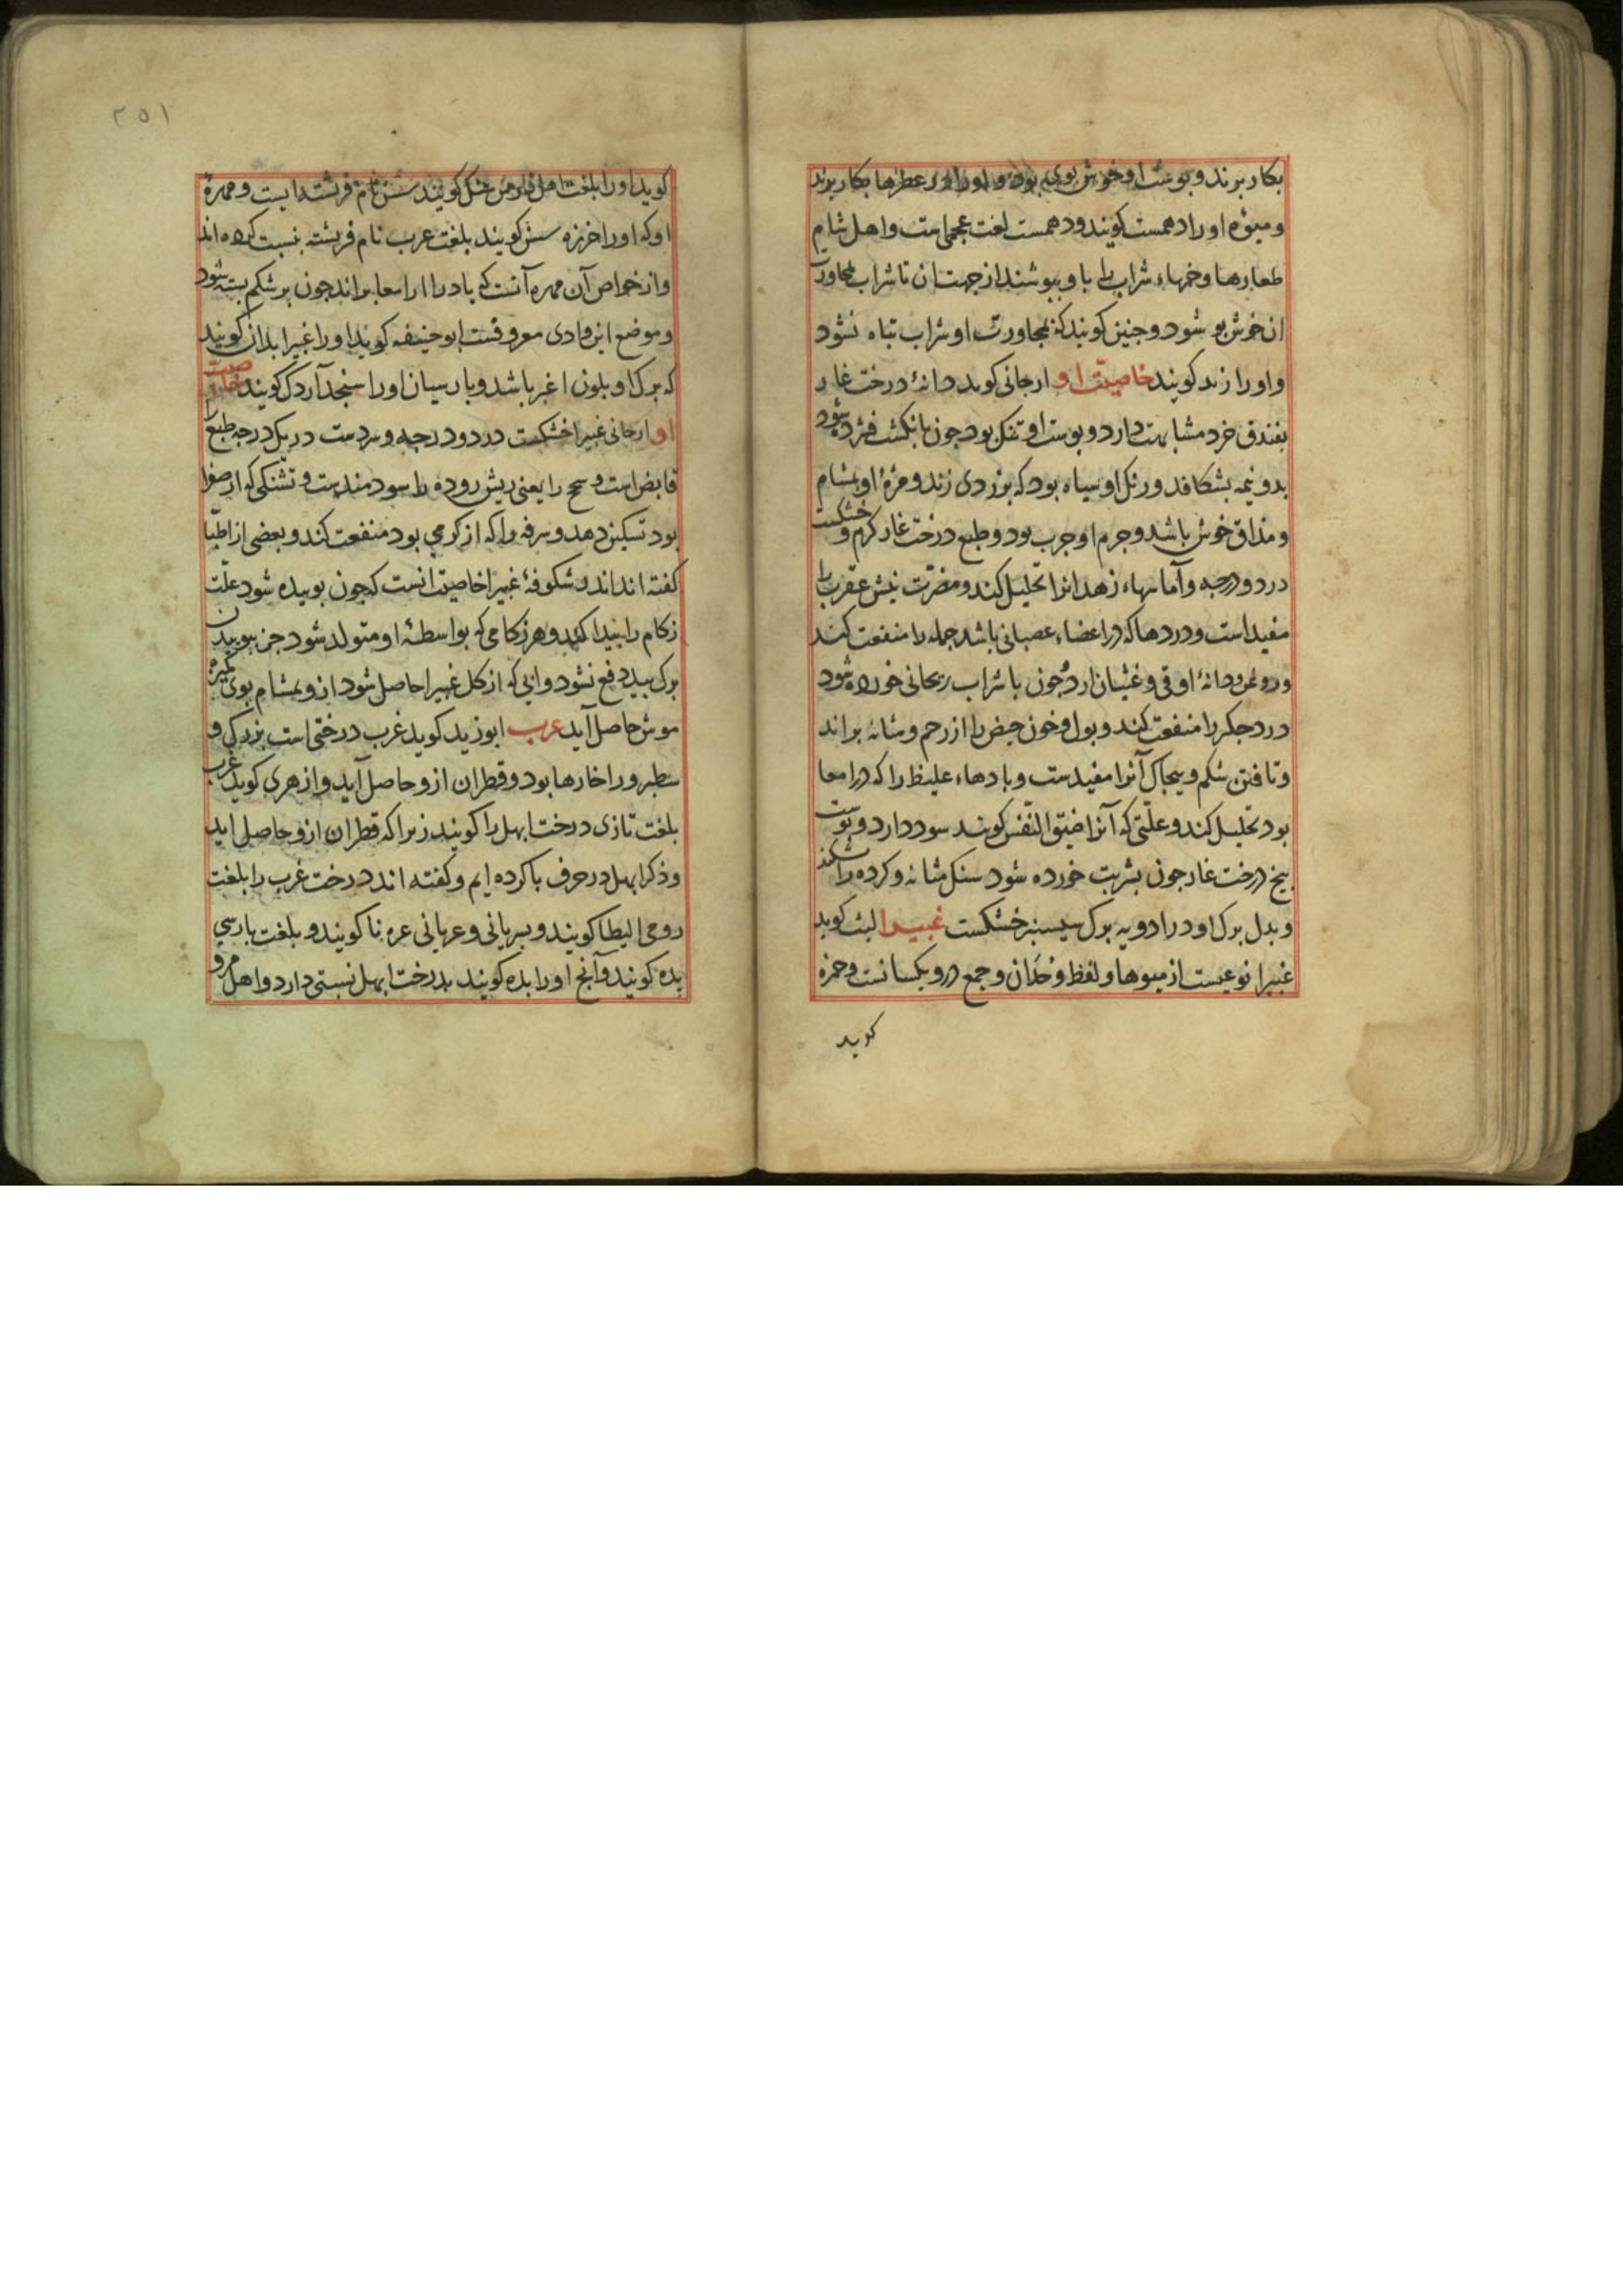 بکار برند و پوست او خوش بوی بود و او را در عطرها بکار برند
و میوهٔ او را دهمست کویند و دهمست لغت عجمی است و اهل شام
طعارها و خمهاء شراب را باو بپوشند از جهت ان تا شراب بمجاورت
ان خوش بو شود و جنین کویند که بمجاورت او شراب تباه نشود
و او را زند کویند خاصیت او ارجانی کوید دانهٔ درخت غار
بفندق خرد مشابهت دارد و پوست او تنک بود جون بانکشت فشرده شود
بدو نیمه بشکافد و رنک او سیاه بود که بزردی زند و مزهٔ او بمشام
و مذاق خوش باشد و جرم او جرب بود و طبع درخت غار کرم و خشکست
در دو درجه و آماسهاء زهدانرا تحلیل کند و مضرت نیش عقرب را
مفید است و دردها که در اعضاء عصبانی باشد جمله را منفعت کند
و روغن دانهٔ او قی و غثیان ارد و جون با شراب ریحانی خورده شود
درد جکر را منفعت کند و بول و خون حیض را از رحم و مثانه براند
و تافتن شکم و بیجاک آنرا مفیدست و بادهاء غلیظ را که در امعا
بود تحلیل کند و علتی که آنرا ضیق النفس کویند سود دارد و پوست
بیخ درخت غار جون بشربت خورده شود سنک مثانه و کرده را بشکند
و بدل برک او در ادویه برک سیسنبر خشکست غبیرا لیث کوید
غبیرا نوعیست از میوها و لفظ وحدان و جمع درو یکسانست و حمزه
کوید
۲۵۱
کوید او را بلغت اهل فارس کویند نام فرشته ایست و مهرهٔ
او که او را خرزه کویند بلغت عرب نام فریشته نسبت کرده اند
و از خواص آن مهره آنست که باد را از امعا براند جون بر شکم بسته شود
و موضع این وادی معروفست ابو حنیفه کوید او را غبیرا بدان کویند
که برک او بلون اغبر باشد و پارسیان او را سنجد آردک کویند خاصیت
او ارجانی غبیرا خشکست در دو درجه و سردست در یک درجه طبع را
قابض است و سحج را یعنی ریش روده را سودمندست و تشنکی که از صفرا
بود تسکین دهد و سرفه را که از کرمی بود منفعت کند و بعضی از اطبا
کفته اند اند شکوفهٔ غبیرا خاصیت انست که جون بوییده شود علت
زکام را پیدا کند و هر زکامی که بواسطهٔ او متولد شود جز ببوییدن
برک بید دفع نشود و ابی که از کل غبیرا حاصل شود ازو بمشام بوی
موش حاصل آید غرب ابو زید کوید غرب درختی است بزرک و
سطبر و را خارها بود و قطران ازو حاصل آید و ازهری کوید غرب
بلغت تازی درخت ابهل را کویند زیرا که قطران ازو حاصل اید
و ذکر ابهل در حرف با کرده ایم و کفته اند درخت غرب را بلغت
رومی الیطا کویند و سریانی و عریانی عربنا کویند و بلغت پارسی
بده کویند و آنج او را بده کویند بدرخت ابهل نسبتی دارد و اهل مرو